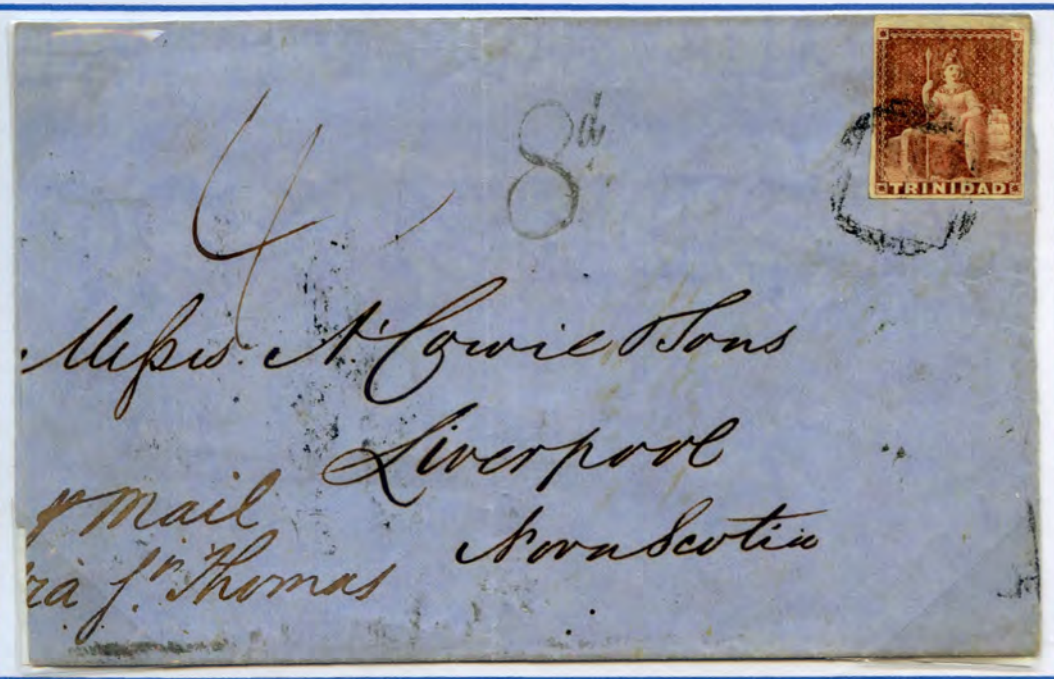 4
8d
TRINIDAD
Messrs. A Cowie & Sons
Liverpool
Nova Scotia
p Mail
via St. Thomas